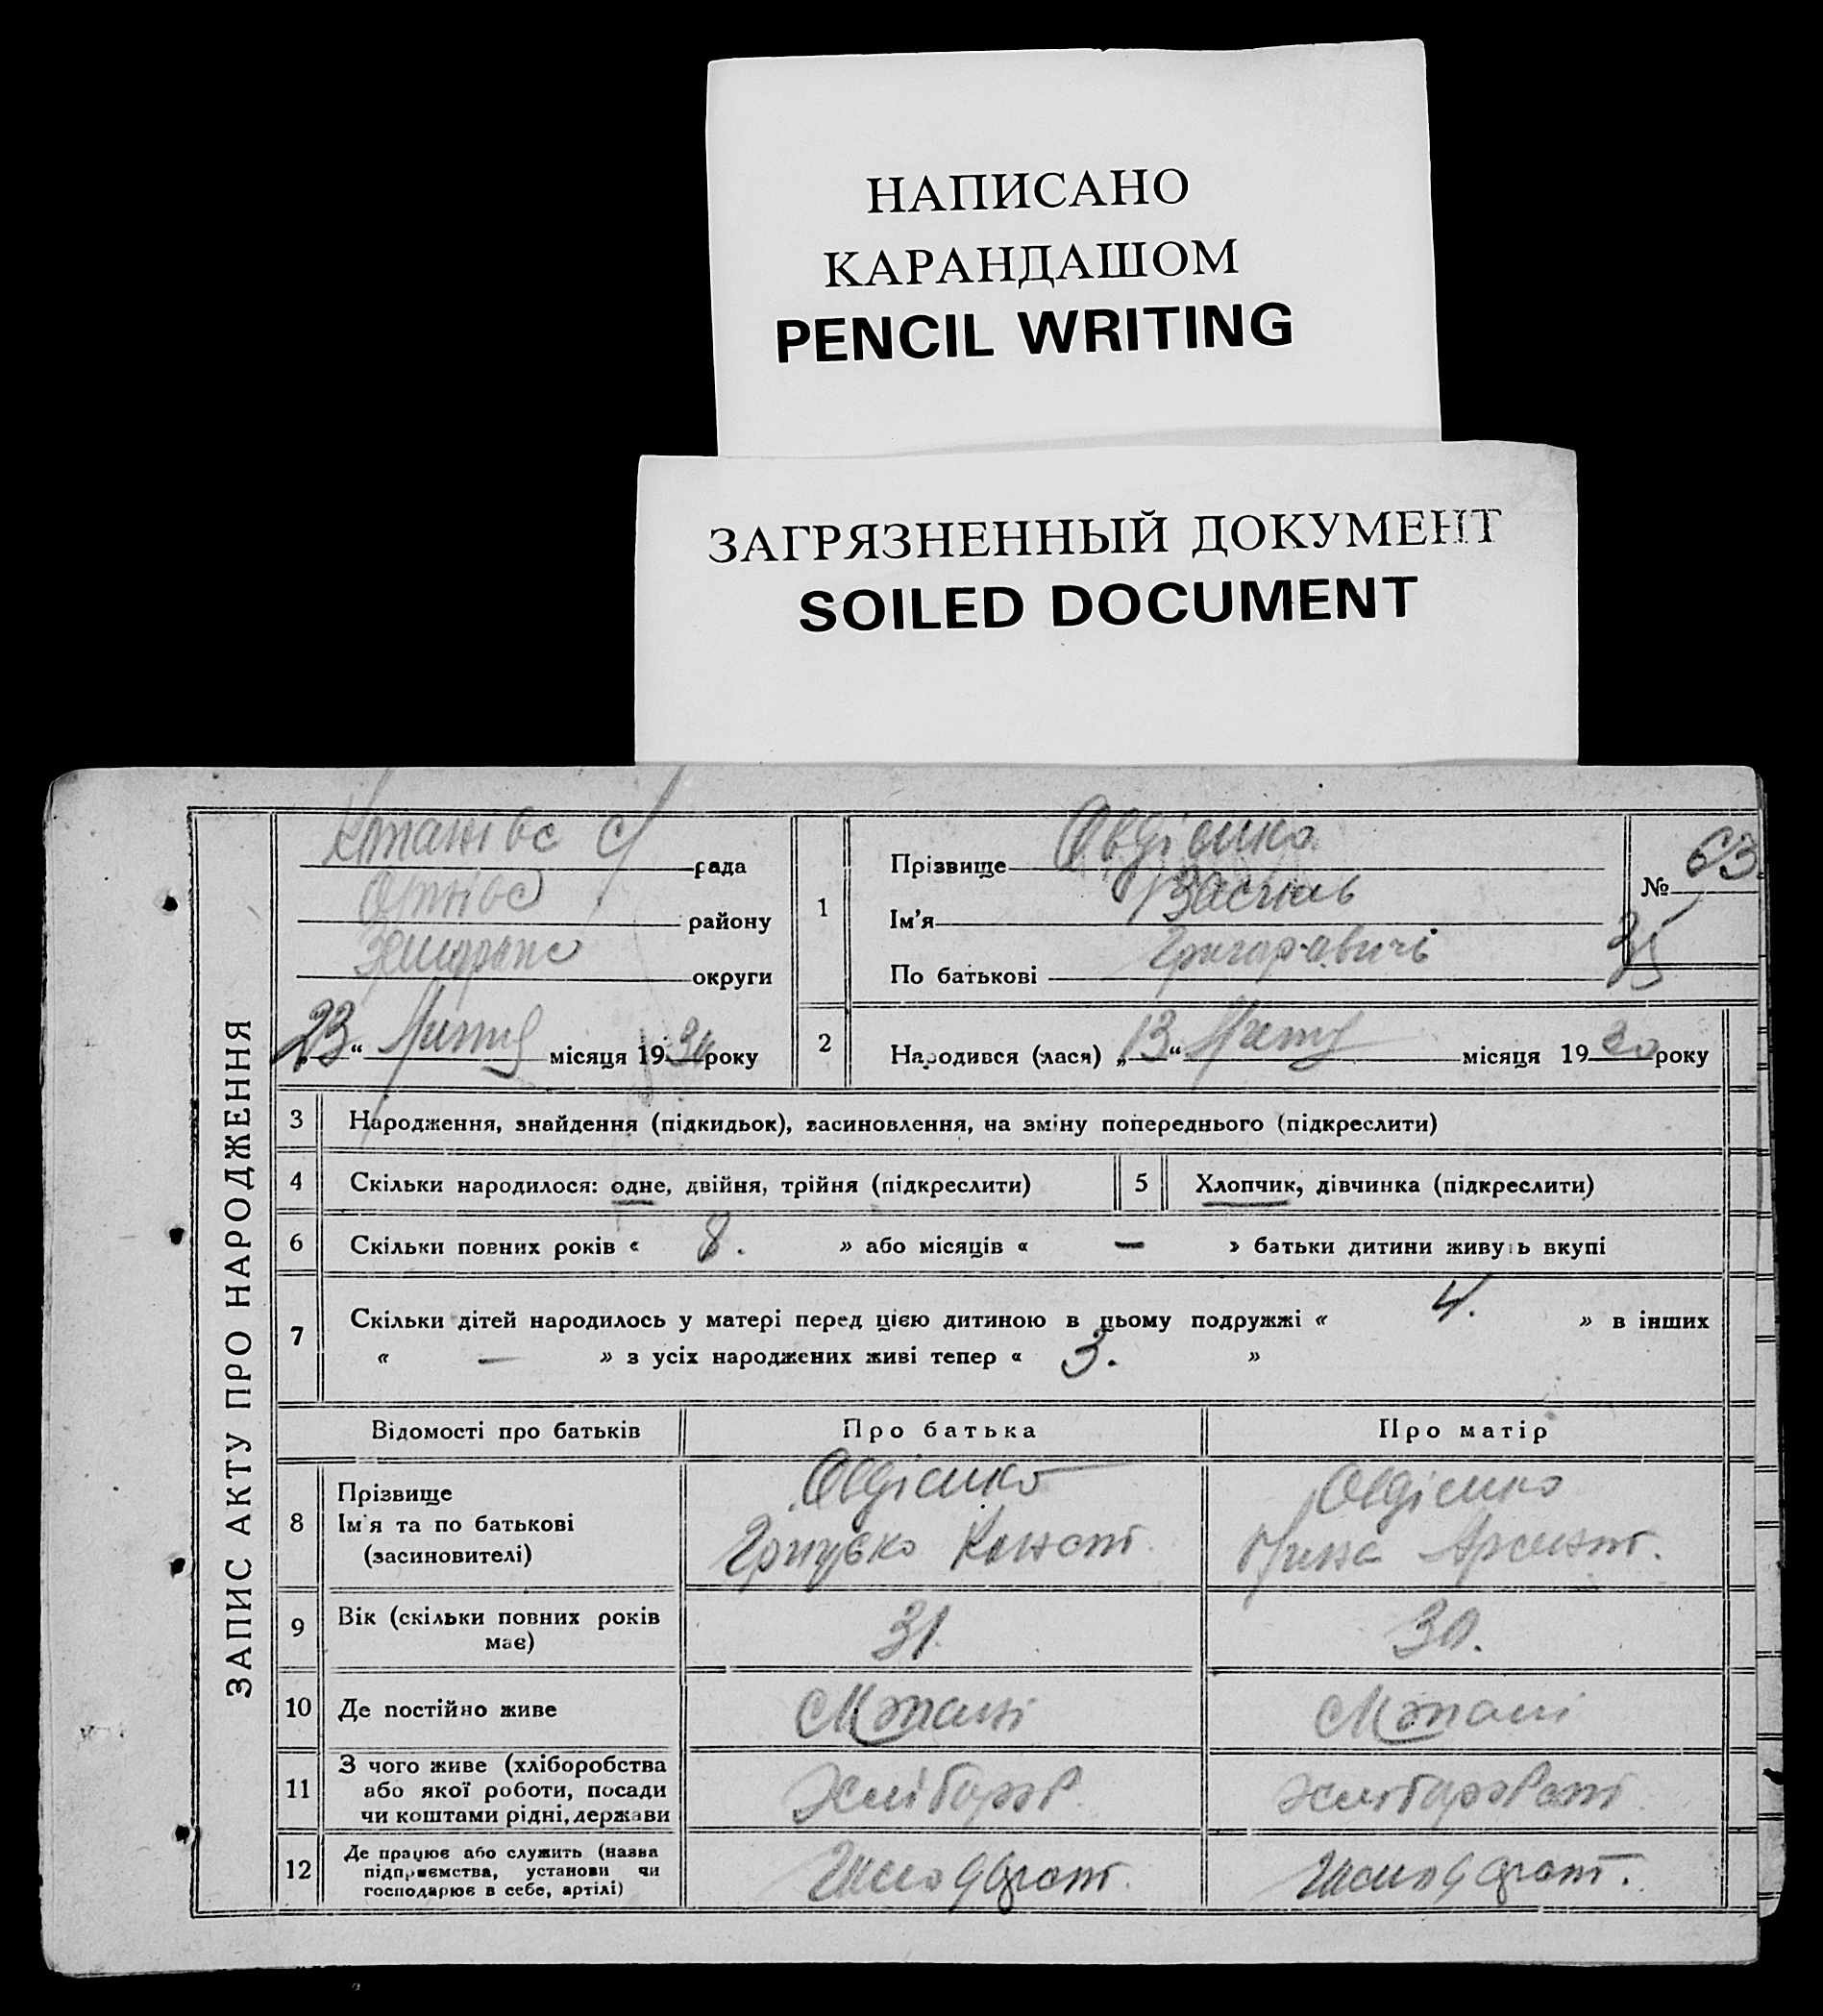 НАПИСАНО
КАРАНДАШОМ
PENCIL WRITING
ЗАГРЯЗНЕННЫЙ ДОКУМЕНТ
SOILED DOCUMENT
ЗАПИС АКТУ ПРО НАРОДЖЕННЯ
рада
району
округи
23 “ Лютня місяця 1930 року
1
Прізвище Овдієнко
Ім’я Василь
По батькові Григоровичь
№ 63
35
2
Народився (лася) „ 13 “ Лютня місяця 1930 року
3 Народження, знайдення (підкидьок), засиновлення, на зміну попереднього (підкреслити)
4 Скільки народилося: одне, двійня, трійня (підкреслити)
5 Хлопчик, дівчинка (підкреслити)
6 Скільки повних років « 8. » або місяців « — » батьки дитини живуть вкупі
7 Скільки дітей народилось у матері перед цією дитиною в цьому подружжі « 4. » в інших
« — » з усіх народжених живі тепер « 3. »
Відомості про батьків Про батька Про матір
8 Прізвище
Ім’я та по батькові
(засиновителі)
Овдієнко
Грицько Конст.
Овдієнко
Арсент.
9 Вік (скільки повних років
має)
31. 30.
10 Де постійно живе
11 З чого живе (хліборобства
або якої роботи, посади
чи коштами рідні, держави
Хлібороб.
12 Де працює або служить (назва
підприємства, установи чи
господарює в себе, артілі)